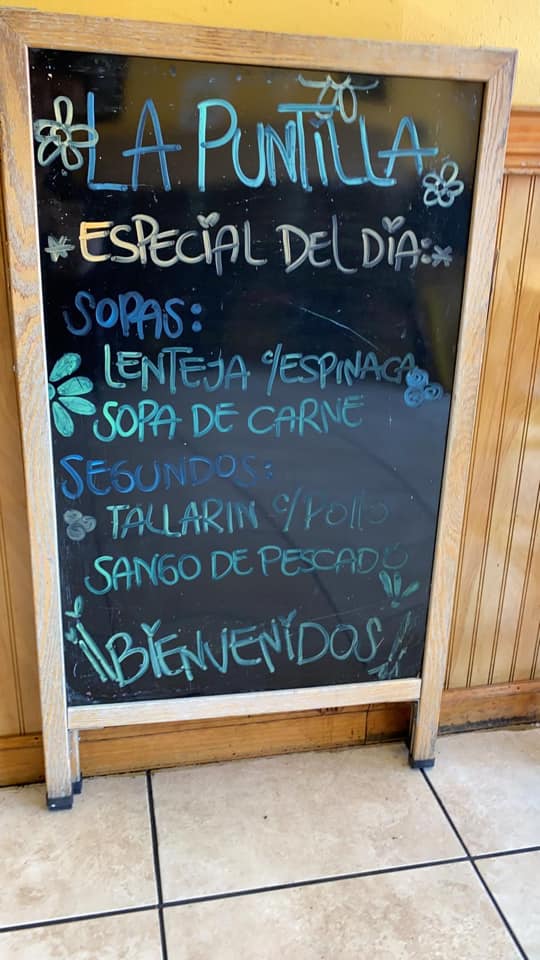 LA PUNTILLA
ESPECIAL DEL DIA:
SOPAS:
LENTEJA c/ESPINACA
SOPA DE CARNE
SEGUNDOS:
TALLARIN c/Pollo
SANGO DE PESCADO
BIENVENIDOS